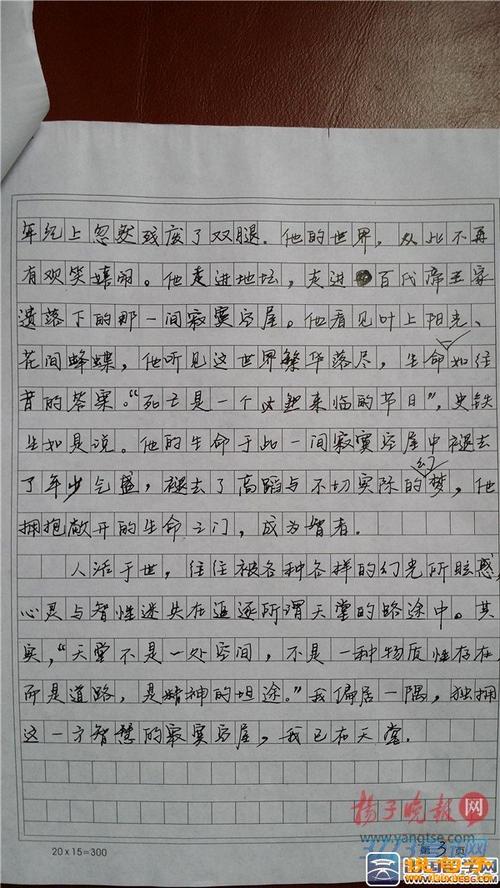 年纪上忽然残废了双腿. 他的世界, 从此不再
有欢笑嬉闹。他走进地坛, 走进百代帝王家
遗落下的那一间寂寞空屋。他看见叶上阳光、
花间蜂蝶, 他听见这世界繁华落尽, 生命如往
昔的答案。“死亡是一个必然来临的节日”, 史铁
生如是说。他的生命于此一间寂寞空屋中褪去
了年少气盛, 褪去了高蹈与不切实际的幻梦, 他
拥抱敞开的生命之门, 成为智者.
人活于世, 往往被各种各样的幻光所眩惑,
心灵与智性迷失在追逐所谓天堂的路途中。其
实, “天堂不是一处空间, 不是一种物质性存在
而是道路, 是精神的坦途。”我偏居一隅, 独拥
这一方智慧的寂寞空屋, 我已在天堂.
扬子晚报网
www.yangtse.com
20×15=300
第 3 页